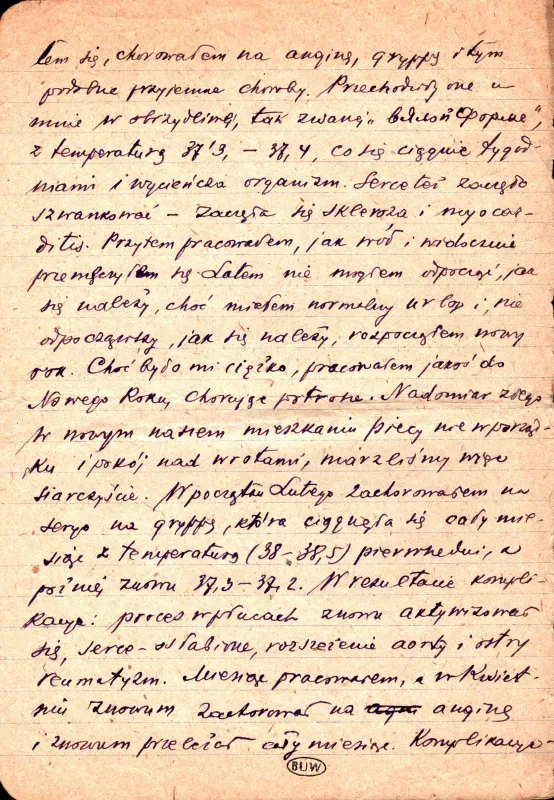 łem się, chorowałem na anginę, gryppę i tym
podobne przyjemne choroby. Przechodziły one u
mnie w obrzydliwej, tak zwanej „вялой форме",
z temperaturą 37,3 – 37,4, co się ciągnie tygod-
niami i wycieńcza organizm. Serce też zaczęło
szwankować – zaczęła się skleroza i myocar-
ditis. Przytem pracowałem, jak wół i widocznie
przemęczyłem się. Latem nie mogłem odpocząć, jak
się należy, choć miałem normalny urlop i, nie
odpocząwszy, jak się należy, rozpocząłem nowy
rok. Choć było mi ciężko, pracowałem jakoś do
Nowego Roku, chorując potrosze. Nadomiar złego
w nowym naszem mieszkaniu piecy nie w porząd-
ku i pokój nad wrotami, marzliśmy więc
siarczyście. W początku Lutego zachorowałem na
seryo na gryppę, która ciągnęła się cały mie-
siąc z temperaturą (38 – 38,5) pierwsze dni, a
później znowu 37,3 – 37,2. W rezultacie kompli-
kacje: proces w płucach znowu aktywizował
się, serce – osłabione, rozszerzenie aorty i ostry
reumatyzm. Miesiąc pracowałem, a w Kwiet-
niu znowum zachorował na anginę
i znowum przeleżał cały miesiąc. Komplikacje –
BUW